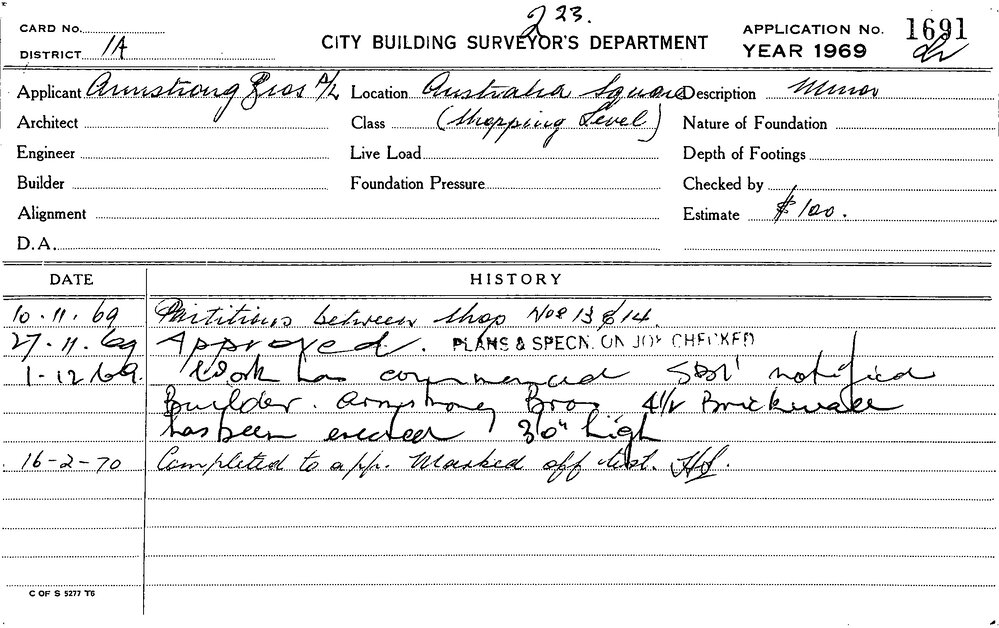 223.
CARD No.
DISTRICT 1A
CITY BUILDING SURVEYOR'S DEPARTMENT
APPLICATION No. 1691
YEAR 1969
Applicant Armstrong Bros P/L Location Australia Square Description Minor
Architect Class (Shopping Level) Nature of Foundation
Engineer Live Load Depth of Footings
Builder Foundation Pressure Checked by
Alignment Estimate $100.
D.A.
DATE HISTORY
10.11.69 Partitions between shop Nos 13 & 14.
27.11.69 Approved. PLANS & SPECN. ON JOB CHECKED
1-12.69. Work has commenced notified
Builder. Armstrong Bros. 4½ Brickwall
has been erected 3'0" high
16-2-70 Completed to app. Marked off
C OF S 5277 T6